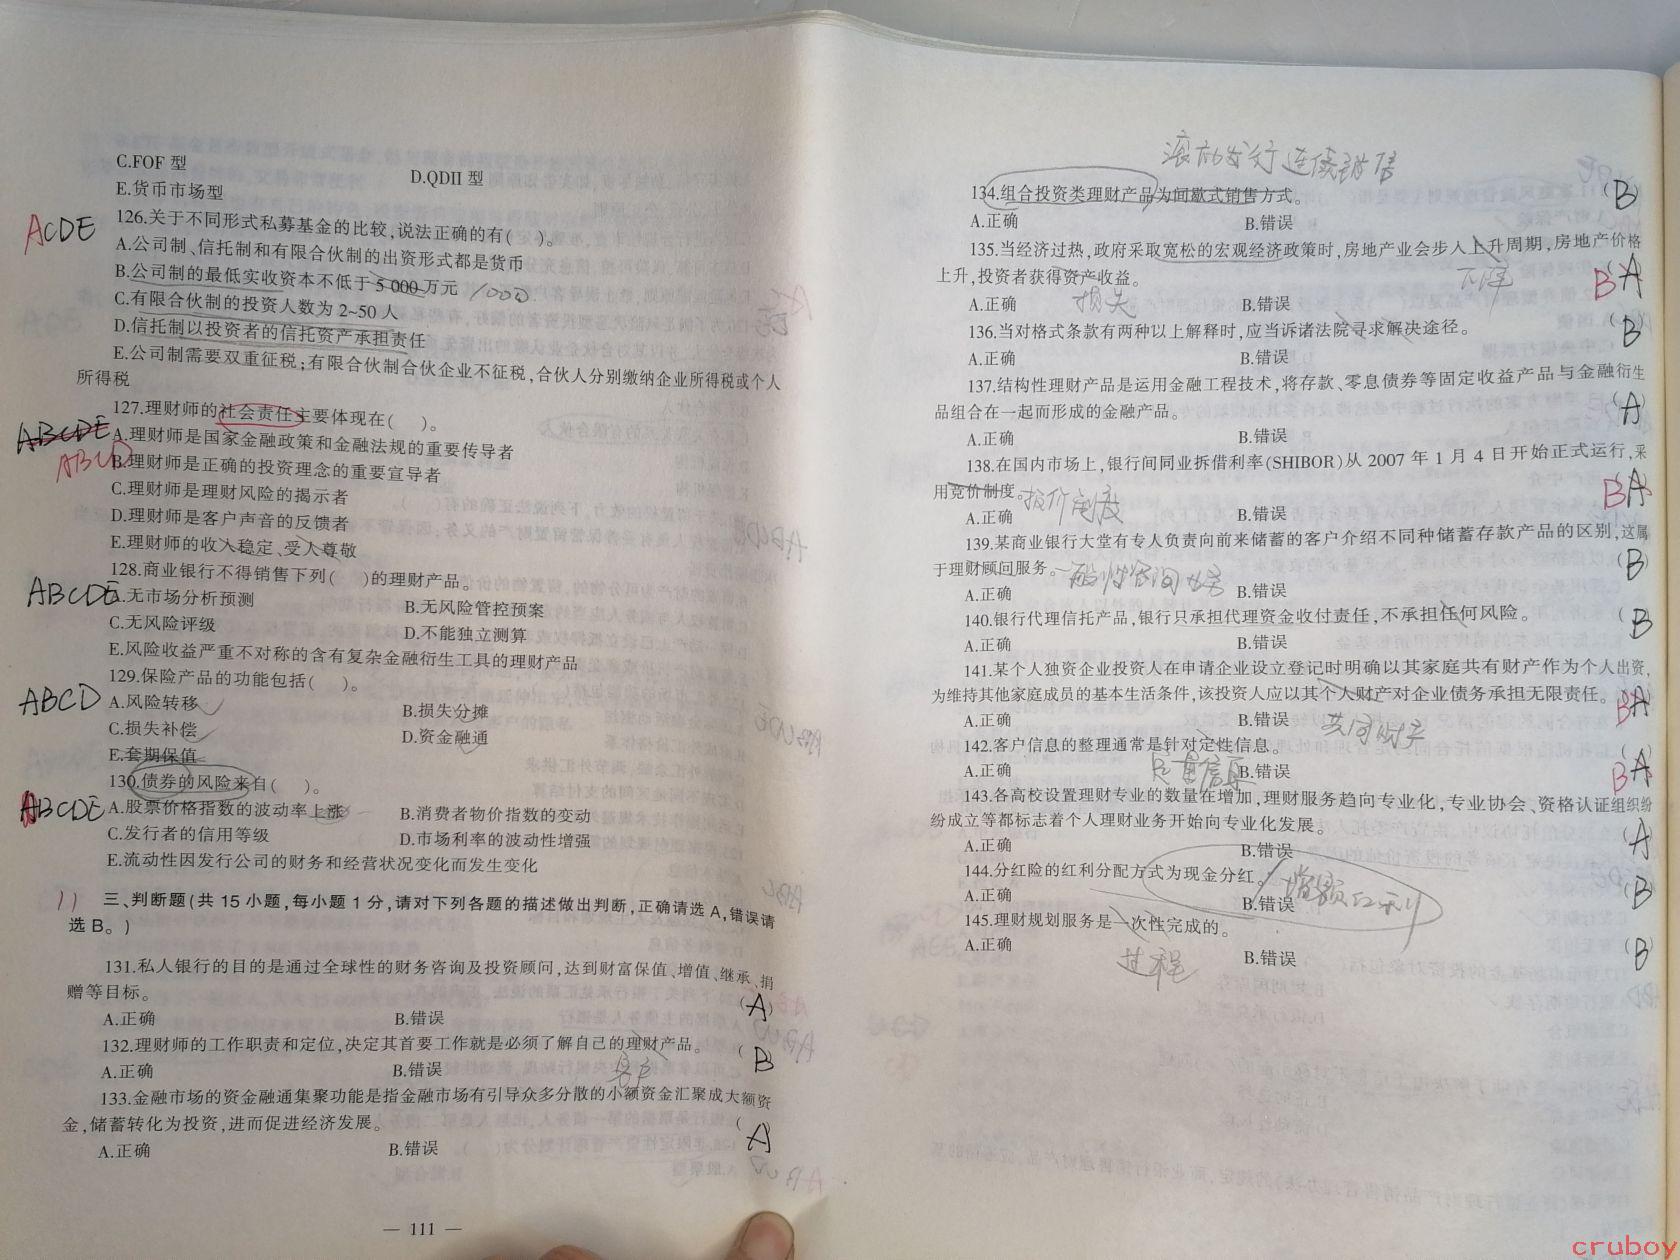 C.FOF 型
D.QDII 型
E.货币市场型
ACDE
126.关于不同形式私募基金的比较,说法正确的有(　)。
A.公司制、信托制和有限合伙制的出资形式都是货币
B.公司制的最低实收资本不低于 5 000 万元 1000
C.有限合伙制的投资人数为 2~50 人
D.信托制以投资者的信托资产承担责任
E.公司制需要双重征税;有限合伙制合伙企业不征税,合伙人分别缴纳企业所得税或个人
所得税
127.理财师的社会责任主要体现在(　)。
ABCDE
A.理财师是国家金融政策和金融法规的重要传导者
ABCD
B.理财师是正确的投资理念的重要宣导者
C.理财师是理财风险的揭示者
D.理财师是客户声音的反馈者
E.理财师的收入稳定、受人尊敬
128.商业银行不得销售下列(　)的理财产品。
ABCDE
A.无市场分析预测
B.无风险管控预案
C.无风险评级
D.不能独立测算
E.风险收益严重不对称的含有复杂金融衍生工具的理财产品
129.保险产品的功能包括(　)。
ABCD
A.风险转移
B.损失分摊
C.损失补偿
D.资金融通
E.套期保值
130.债券的风险来自(　)。
ABCDE
A.股票价格指数的波动率上涨
B.消费者物价指数的变动
C.发行者的信用等级
D.市场利率的波动性增强
E.流动性因发行公司的财务和经营状况变化而发生变化
11
三、判断题(共 15 小题,每小题 1 分,请对下列各题的描述做出判断,正确请选 A,错误请
选 B。)
131.私人银行的目的是通过全球性的财务咨询及投资顾问,达到财富保值、增值、继承、捐
赠等目标。 (A)
A.正确
B.错误
132.理财师的工作职责和定位,决定其首要工作就是必须了解自己的理财产品。 (B
A.正确
B.错误
客户
133.金融市场的资金融通集聚功能是指金融市场有引导众多分散的小额资金汇聚成大额资
金,储蓄转化为投资,进而促进经济发展。 (A)
A.正确
B.错误
— 111 —
滚动发行 连续销售
134.组合投资类理财产品为间歇式销售方式。 (B)
A.正确
B.错误
135.当经济过热,政府采取宽松的宏观经济政策时,房地产业会步入上升周期,房地产价格
上升,投资者获得资产收益。 下降 B(A
A.正确 损失
B.错误
136.当对格式条款有两种以上解释时,应当诉诸法院寻求解决途径。 (B
A.正确
B.错误
137.结构性理财产品是运用金融工程技术,将存款、零息债券等固定收益产品与金融衍生
品组合在一起而形成的金融产品。 (A)
A.正确
B.错误
138.在国内市场上,银行间同业拆借利率(SHIBOR)从 2007 年 1 月 4 日开始正式运行,采
用竞价制度。 报价制度 B(A)
A.正确
B.错误
139.某商业银行大堂有专人负责向前来储蓄的客户介绍不同种储蓄存款产品的区别,这属
于理财顾问服务。 一般性咨询业务 (B)
A.正确
B.错误
140.银行代理信托产品,银行只承担代理资金收付责任,不承担任何风险。 (B
A.正确
B.错误
141.某个人独资企业投资人在申请企业设立登记时明确以其家庭共有财产作为个人出资,
为维持其他家庭成员的基本生活条件,该投资人应以其个人财产对企业债务承担无限责任。 B(A
A.正确
B.错误 共同财产
142.客户信息的整理通常是针对定性信息。 B(A
A.正确 定量信息
B.错误
143.各高校设置理财专业的数量在增加,理财服务趋向专业化,专业协会、资格认证组织纷
纷成立等都标志着个人理财业务开始向专业化发展。 (A
A.正确
B.错误
144.分红险的红利分配方式为现金分红。 增额红利 (B
A.正确
B.错误
145.理财规划服务是一次性完成的。 (B
A.正确 过程
B.错误
cruboy